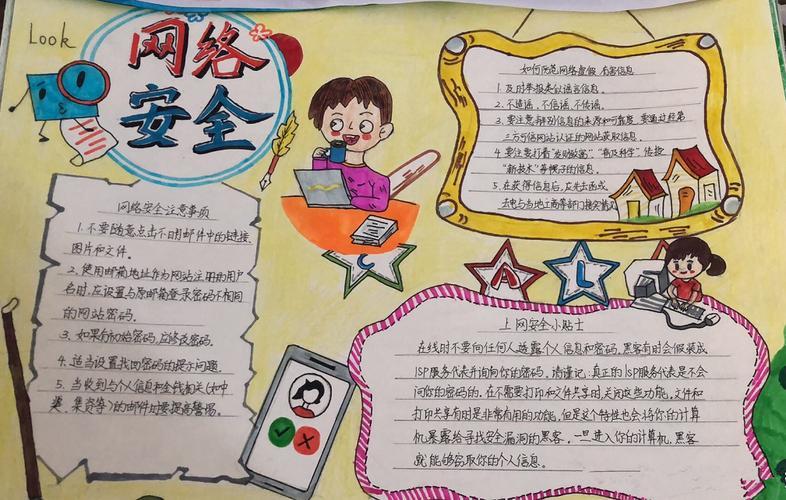 Look
网络
安全
网络安全注意事项
1. 不要随意点击不明邮件中的链接、
图片和文件。
2. 使用邮箱地址作为网站注册的用户
名时,应设置与原邮箱登录密码不相同
的网站密码。
3. 如果有初始密码,应修改密码。
4. 适当设置找回密码的提示问题。
5. 当收到与个人信息和金钱相关(如中
奖、集资等)的邮件时要提高警惕。
如何防范网络虚假 有害信息
1. 及时举报类似谣言信息。
2. 不造谣、不信谣、不传谣。
3. 要注意辨别信息的来源和可靠度,要通过经第
三方可信网站认证的网站获取信息。
4. 要注意打着“发财致富”、“普及科学”、传授
“新技术”等幌子的信息。
5. 在获得信息后,应先去函或
去电与当地工商等部门
C
A
L
上网安全小贴士
在线时不要向任何人透露个人信息和密码。黑客有时会假装成
ISP服务代表并询问你的密码。请谨记:真正的ISP服务代表是不会
问你的密码的。在不需要打印和文件共享时,关闭这些功能。文件和
打印共享有时是非常有用的功能,但是这个特性也会将你的计算
机暴露给寻找安全漏洞的黑客。一旦进入你的计算机,黑客
就能够窃取你的个人信息。